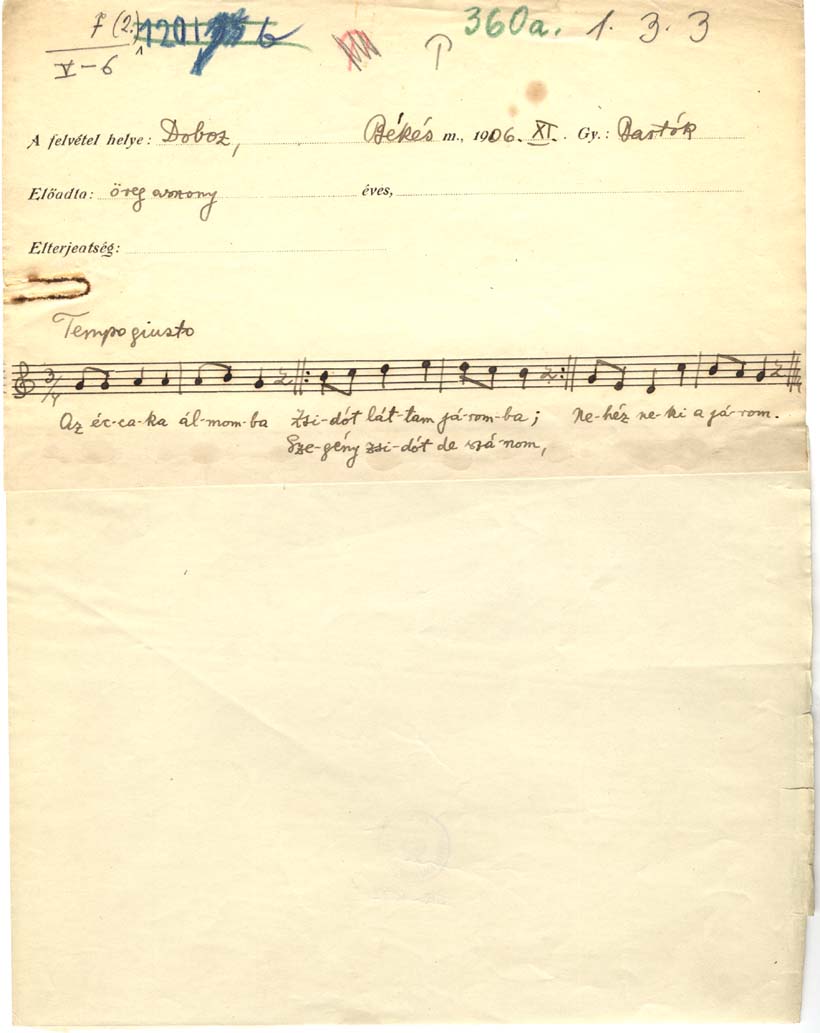 7 (2.) 1201 6 360a. 1. 3. 3
V-6
A felvétel helye: Doboz, Békés m., 1906. XI. Gy.: Bartók
Előadta: öreg asszony éves,
Elterjeatség:
Tempo giusto
3/4
Az éc-ca-ka ál-mom-ba Zsi-dót lát-tam já-rom-ba; Ne-héz ne-ki a já-rom.
Sze-gény zsi-dót de szá-nom,